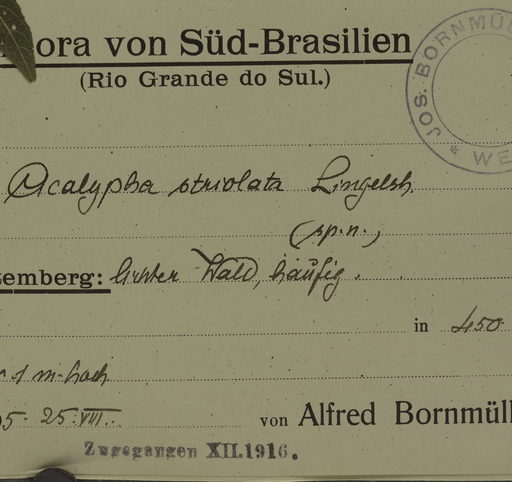 ora von Süd-Brasilien
(Rio Grande do Sul.)
JOS. BORNMÜ
* WE
Acalypha striolata Lingelsh.
(sp. n.)
temberg: lichter Wald, häufig.
in 450
1 m hoch
5- 25.VIII.
von Alfred Bornmüll
Zugegangen XII.1916.